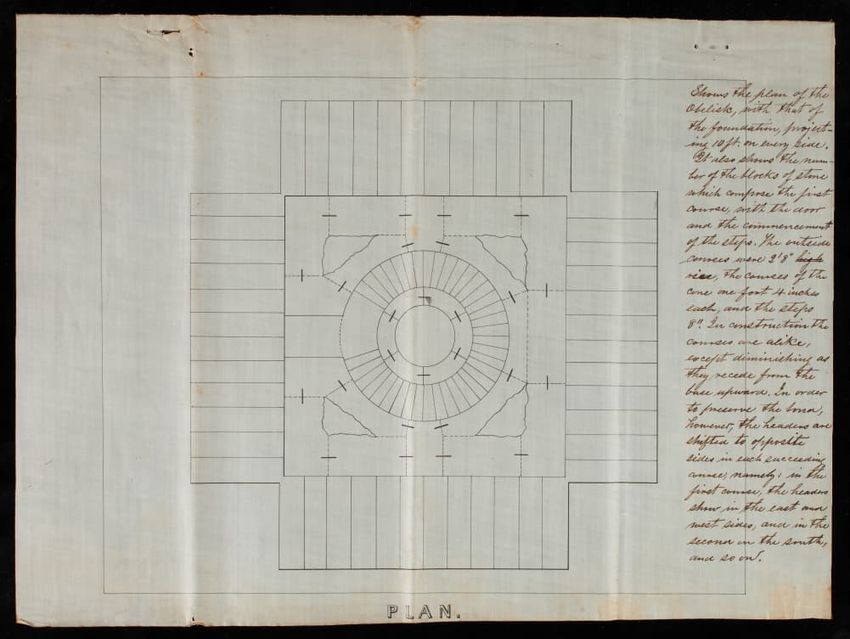 Shows the plan of the
Obelisk, with that of
the foundation, project-
ing 10 ft. on every side.
It also shows the num-
ber of the blocks of stone
which compose the first
course, with the door
and the commencement
of the steps. The outside
courses were 2'8" high
rise, the courses of the
cone one foot 4 inches
each, and the steps
8". In construction the
courses are alike,
except diminishing as
they recede from the
base upward. In order
to preserve the bond,
however, the headers are
shifted to opposite
sides in each succeeding
course, namely: in the
first course, the headers
show in the east and
west sides, and in the
second on the south,
and so on.
PLAN.